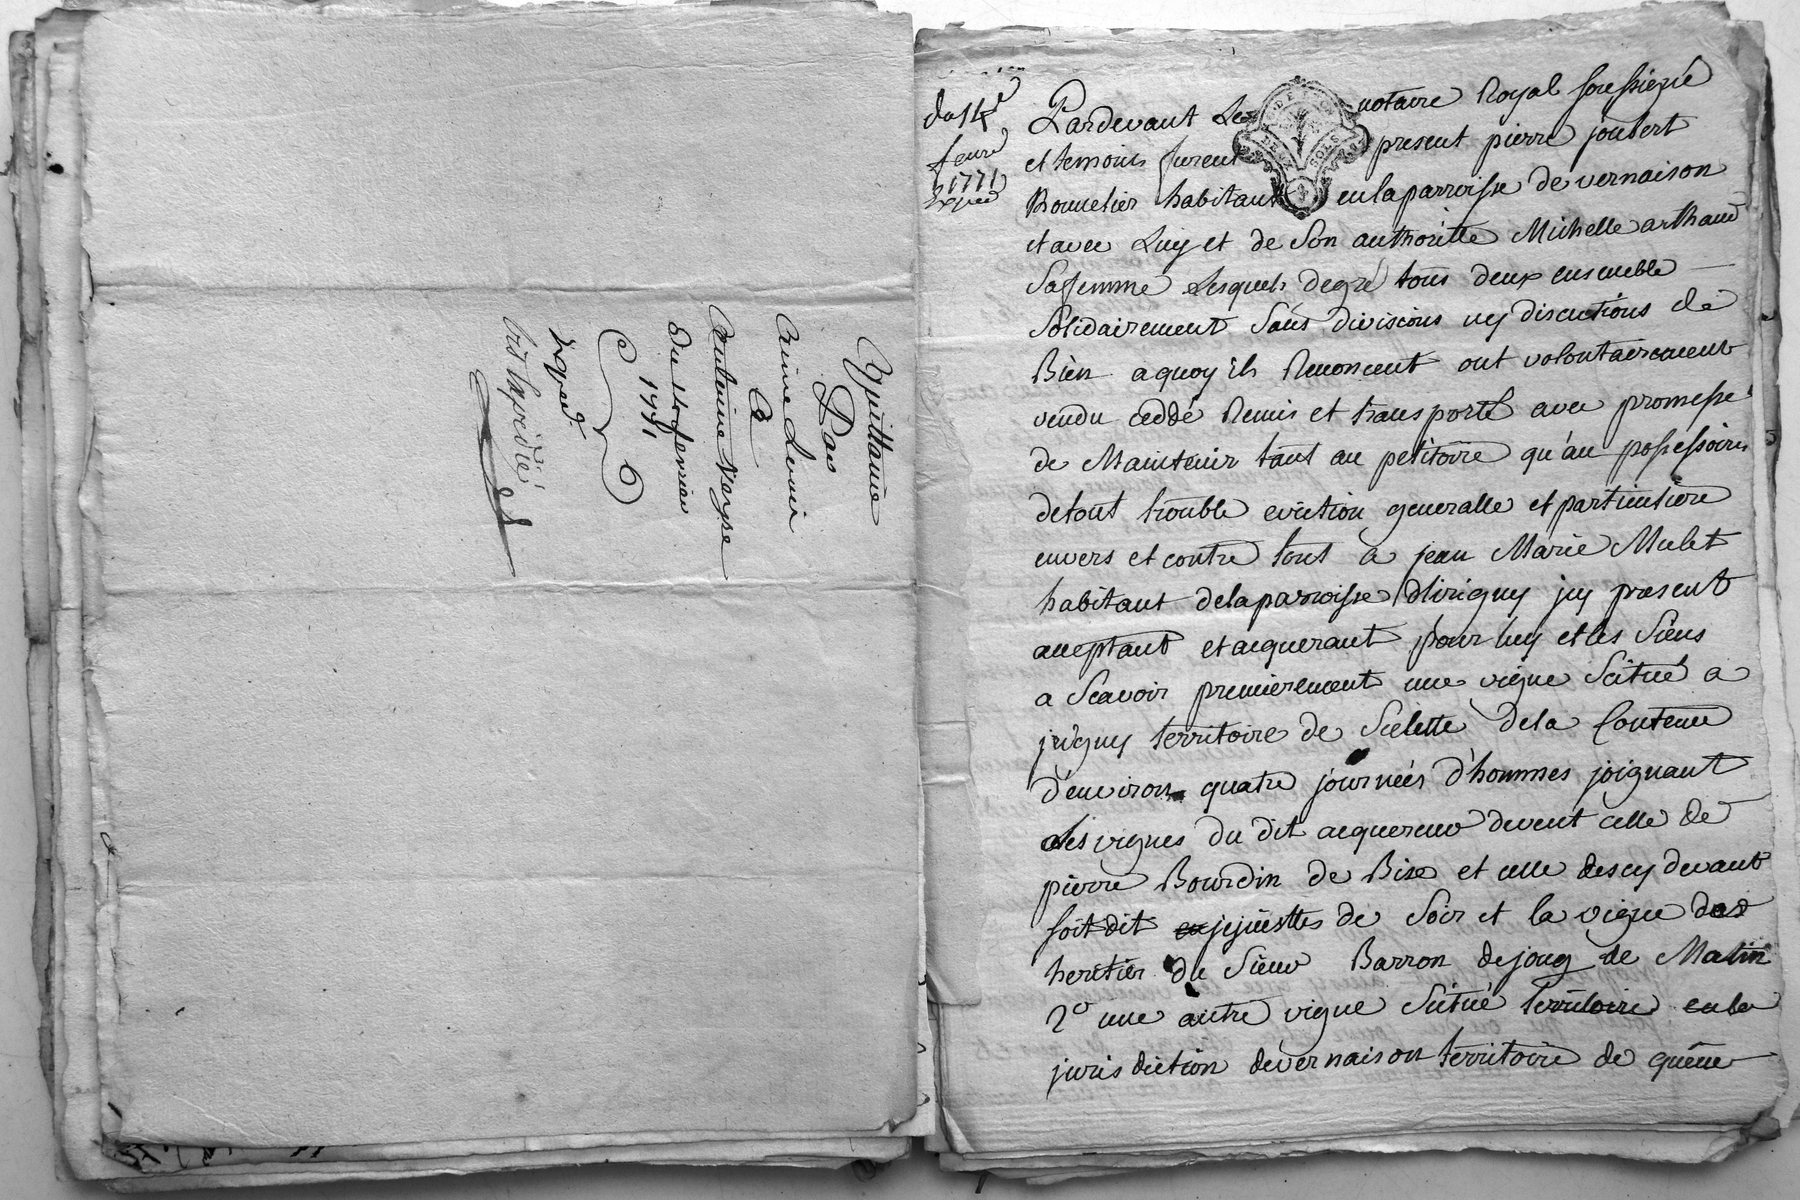 Quittance
Par
Anne Levir
A
Antoine Veyse
du 10 fevrier
1771
Exped.
du 14e
fevrier
1771
Exped
Pardevant Le notaire Royal soussigné
et temoins furent present pierre joubert
Bonnelier habitant en la parroisse de vernaison
et avec Luy et de Son authoritte Michelle arthaud
Sa femme Lesquels de gré tous deux ensemble
Solidairement Sans divisions ny discutions de
Bien a quoy ils Renoncent ont volontairement
vendu ceddé Remis et transporté avec promesse
de Maintenir tant au petitoire qu'au possessoire
de tout trouble eviction generalle et particuliere
envers et contre tous a jean Marie Mulet
habitant de la parroisse d'irigny jcy present
acceptant et acquerant pour luy et les Siens
a Scavoir premierement une vigne Scitué a
jrigny territoire de Selette de la Contenue
d'environ quatre journées d'hommes joignant
les vignes du dit acquereur de vent celle de
pierre Bourdin de Bise et celle des cy devant
soit dit jejuittes de Soir et la vigne des
heritier du Sieur Barron de joug de Matin
2o une autre vigne Scitué territoire en la
jurisdiction de vernaison territoire de